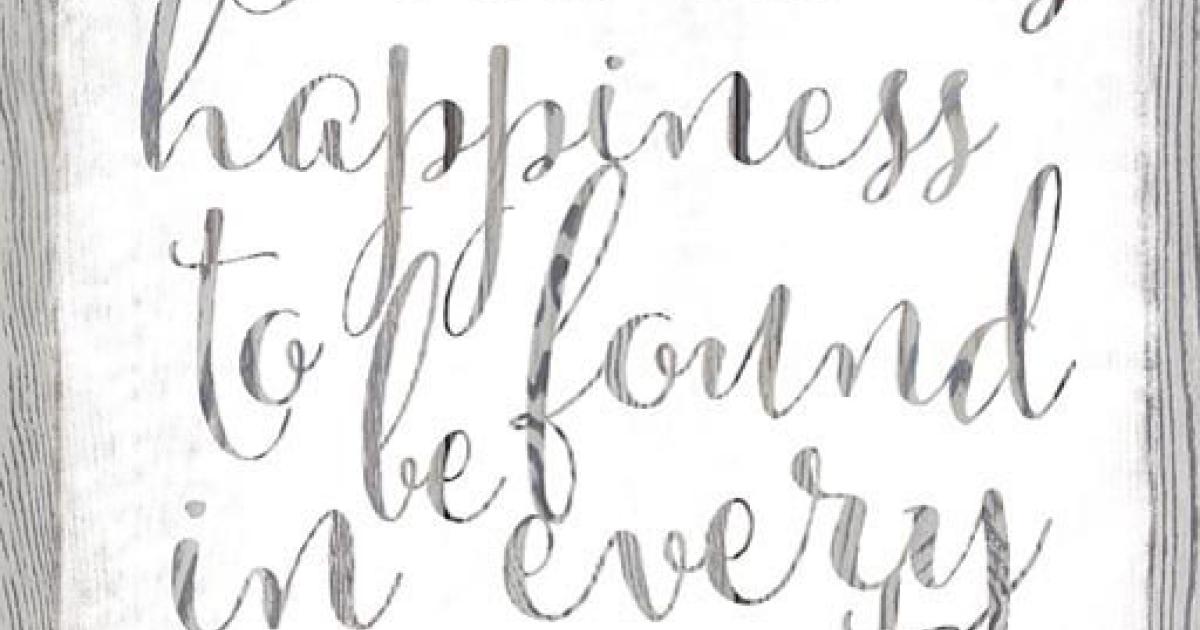 happiness
to be found
in every